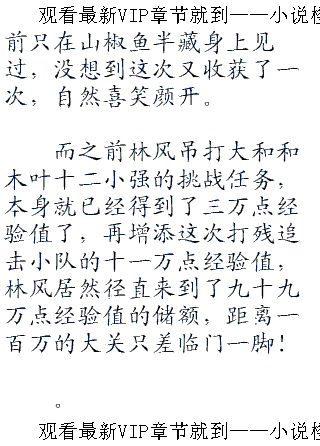 观看最新VIP章节就到——小说
前只在山椒鱼半藏身上见
过，没想到这次又收获了一
次，自然喜笑颜开。
而之前林风吊打大和和
木叶十二小强的挑战任务，
本身就已经得到了三万点经
验值了，再增添这次打残追
击小队的十一万点经验值，
林风居然径直来到了九十九
万点经验值的储额，距离一
百万的大关只差临门一脚！
。
观看最新VIP章节就到——小说